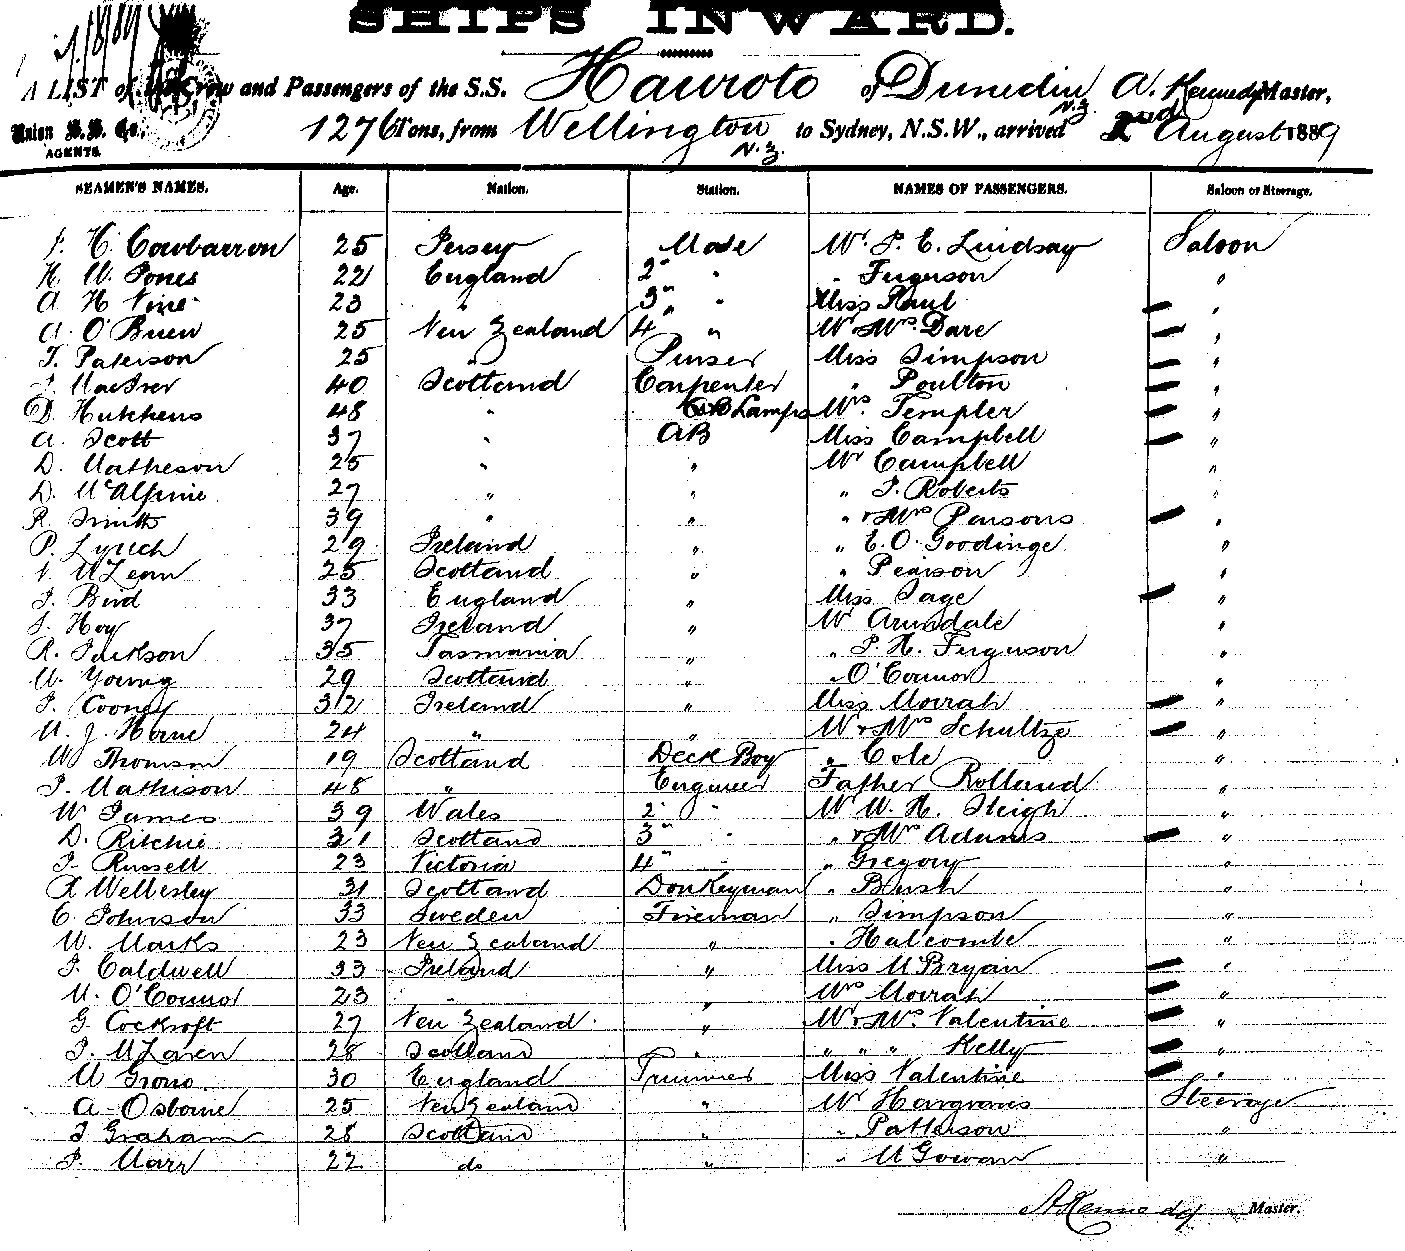 SHIPS INWARD.
A LIST of the Crew and Passengers of the S.S. Hauroto of Dunedin N.Z. A. Kennedy Master,
Union S.S. Co., AGENTS. 1276 Tons, from Wellington N.Z. to Sydney, N.S.W., arrived 2nd August 1889
SEAMEN'S NAMES. Age. Nation. Station. NAMES OF PASSENGERS. Saloon or Steerage.
H. 25 Jersey Mate Mr. P. E. Lindsay Saloon
H. W. Jones 22 England 2" " " Ferguson "
A. H. Vine 23 " 3" " Miss "
A. O'Brien 25 New Zealand 4 " Mr Mrs Dare "
T. Paterson 25 " Purser Miss Simpson "
40 Scotland Carpenter " Poulton "
D. Hutchens 48 " Lamps Mrs. Templer "
A. Scott 37 " AB Miss Campbell "
D. Matheson 25 " " Mr Campbell "
D. McAlpine 27 " " " J. Roberts "
R. Smith 39 " " " & Mrs Parsons "
P. Lynch 29 Ireland " " E. O. Goodinge "
McLean 25 Scotland " " Pearson "
J. Bird 33 England " Miss "
Hoy 37 Ireland " Mr Arundale "
R. Jackson 35 Tasmania " " P. H. Ferguson "
Young 29 Scotland " " O'Connor "
J. Cooney 32 Ireland " Miss Morrah "
M. J. Horne 24 " " Mr & Mrs Schultze "
W Thomson 19 Scotland Deck Boy " Cole "
J. Mathison 48 " Engineer Father Rolland "
W James 39 Wales 2 " Mr W. H. Sleigh "
D. Ritchie 31 Scotland 3" " " & Mrs Adams "
J. Russell 23 Victoria 4" " " Gregory "
R Wellesley 31 Scotland Donkeyman " Bush "
C. Johnson 33 Sweden Fireman " Simpson "
W. Marks 23 New Zealand " " Halcombe "
J. Caldwell 33 Ireland " Miss McBryan "
M. O'Connor 23 " " Mrs Morrah "
G. Cockroft 27 New Zealand " Mr & Mrs Valentine "
J. McLaren 28 Scotland " " " " Kelly "
30 England Trimmer Miss Valentine "
A Osborne 25 New Zealand " Mr Hargraves Steerage
J Graham 28 Scotland " " Patterson "
J. Marr 22 do " " McGowan "
A Kennedy Master.